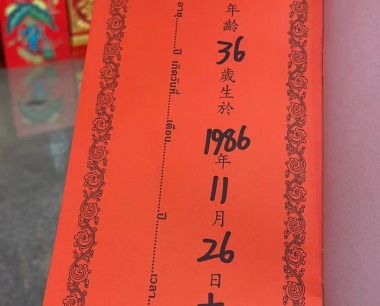 年齡 36 歲生於 1986 年 11 月 26 日
อายุ..........ปี เกิดวันที่..........เดือน..........ปี..........เวลา